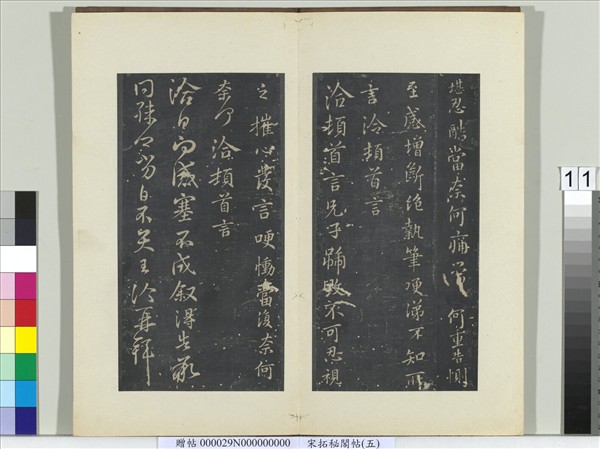 堪忍酷當奈何痛 何重告惻
至感增斷絶執筆哽涕不知所
言洽頓首言
洽頓首言兄子號毀不可忍視
之摧心發言哽慟當復奈何
奈何洽頓首言
洽白 感塞不成叙得告
同 勞白不具王洽再拜
11
贈帖 000029N000000000 宋拓秘閣帖(五)